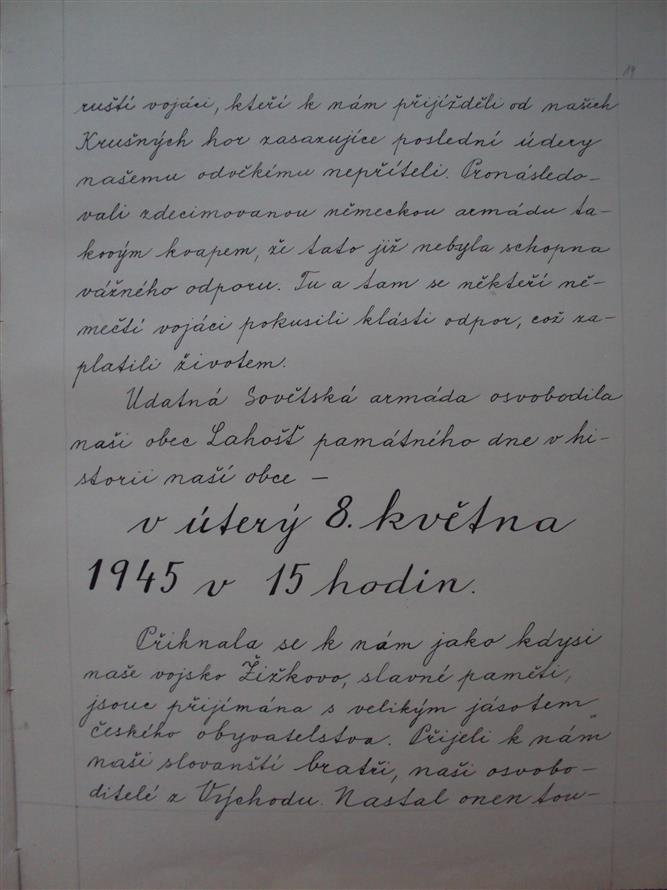 19
ruští vojáci, kteří k nám přijížděli od našich
Krušných hor zasazujíce poslední údery
našemu odvěkímu nepříteli. Pronásledo-
vali zdecimovanou německou armádu ta-
kovým kvapem, že tato již nebyla schopna
vážného odporu. Tu a tam se někteří ně-
mečtí vojáci pokusili klásti odpor, což za-
platili životem.
Udatná Sovětská armáda osvobodila
naši obec Lahošť památného dne v hi-
storii naší obce —
v úterý 8. května
1945 v 15 hodin.
Přihnala se k nám jako kdysi
naše vojsko Žižkovo, slavné paměti,
jsouc přijímána s velikým jásotem
českého obyvatelstva. Přijeli k nám
naši slovanští bratři, naši osvobo-
ditelé z Východu. Nastal onen tou-